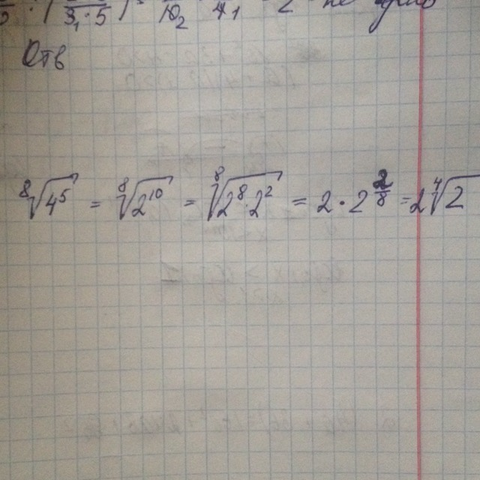 3₁·5 10₂ · 4₁ 2
Отв
⁸√4⁵ = ⁸√2¹⁰ = ⁸√2⁸·2² = 2·2^(2/8) = 2⁴√2